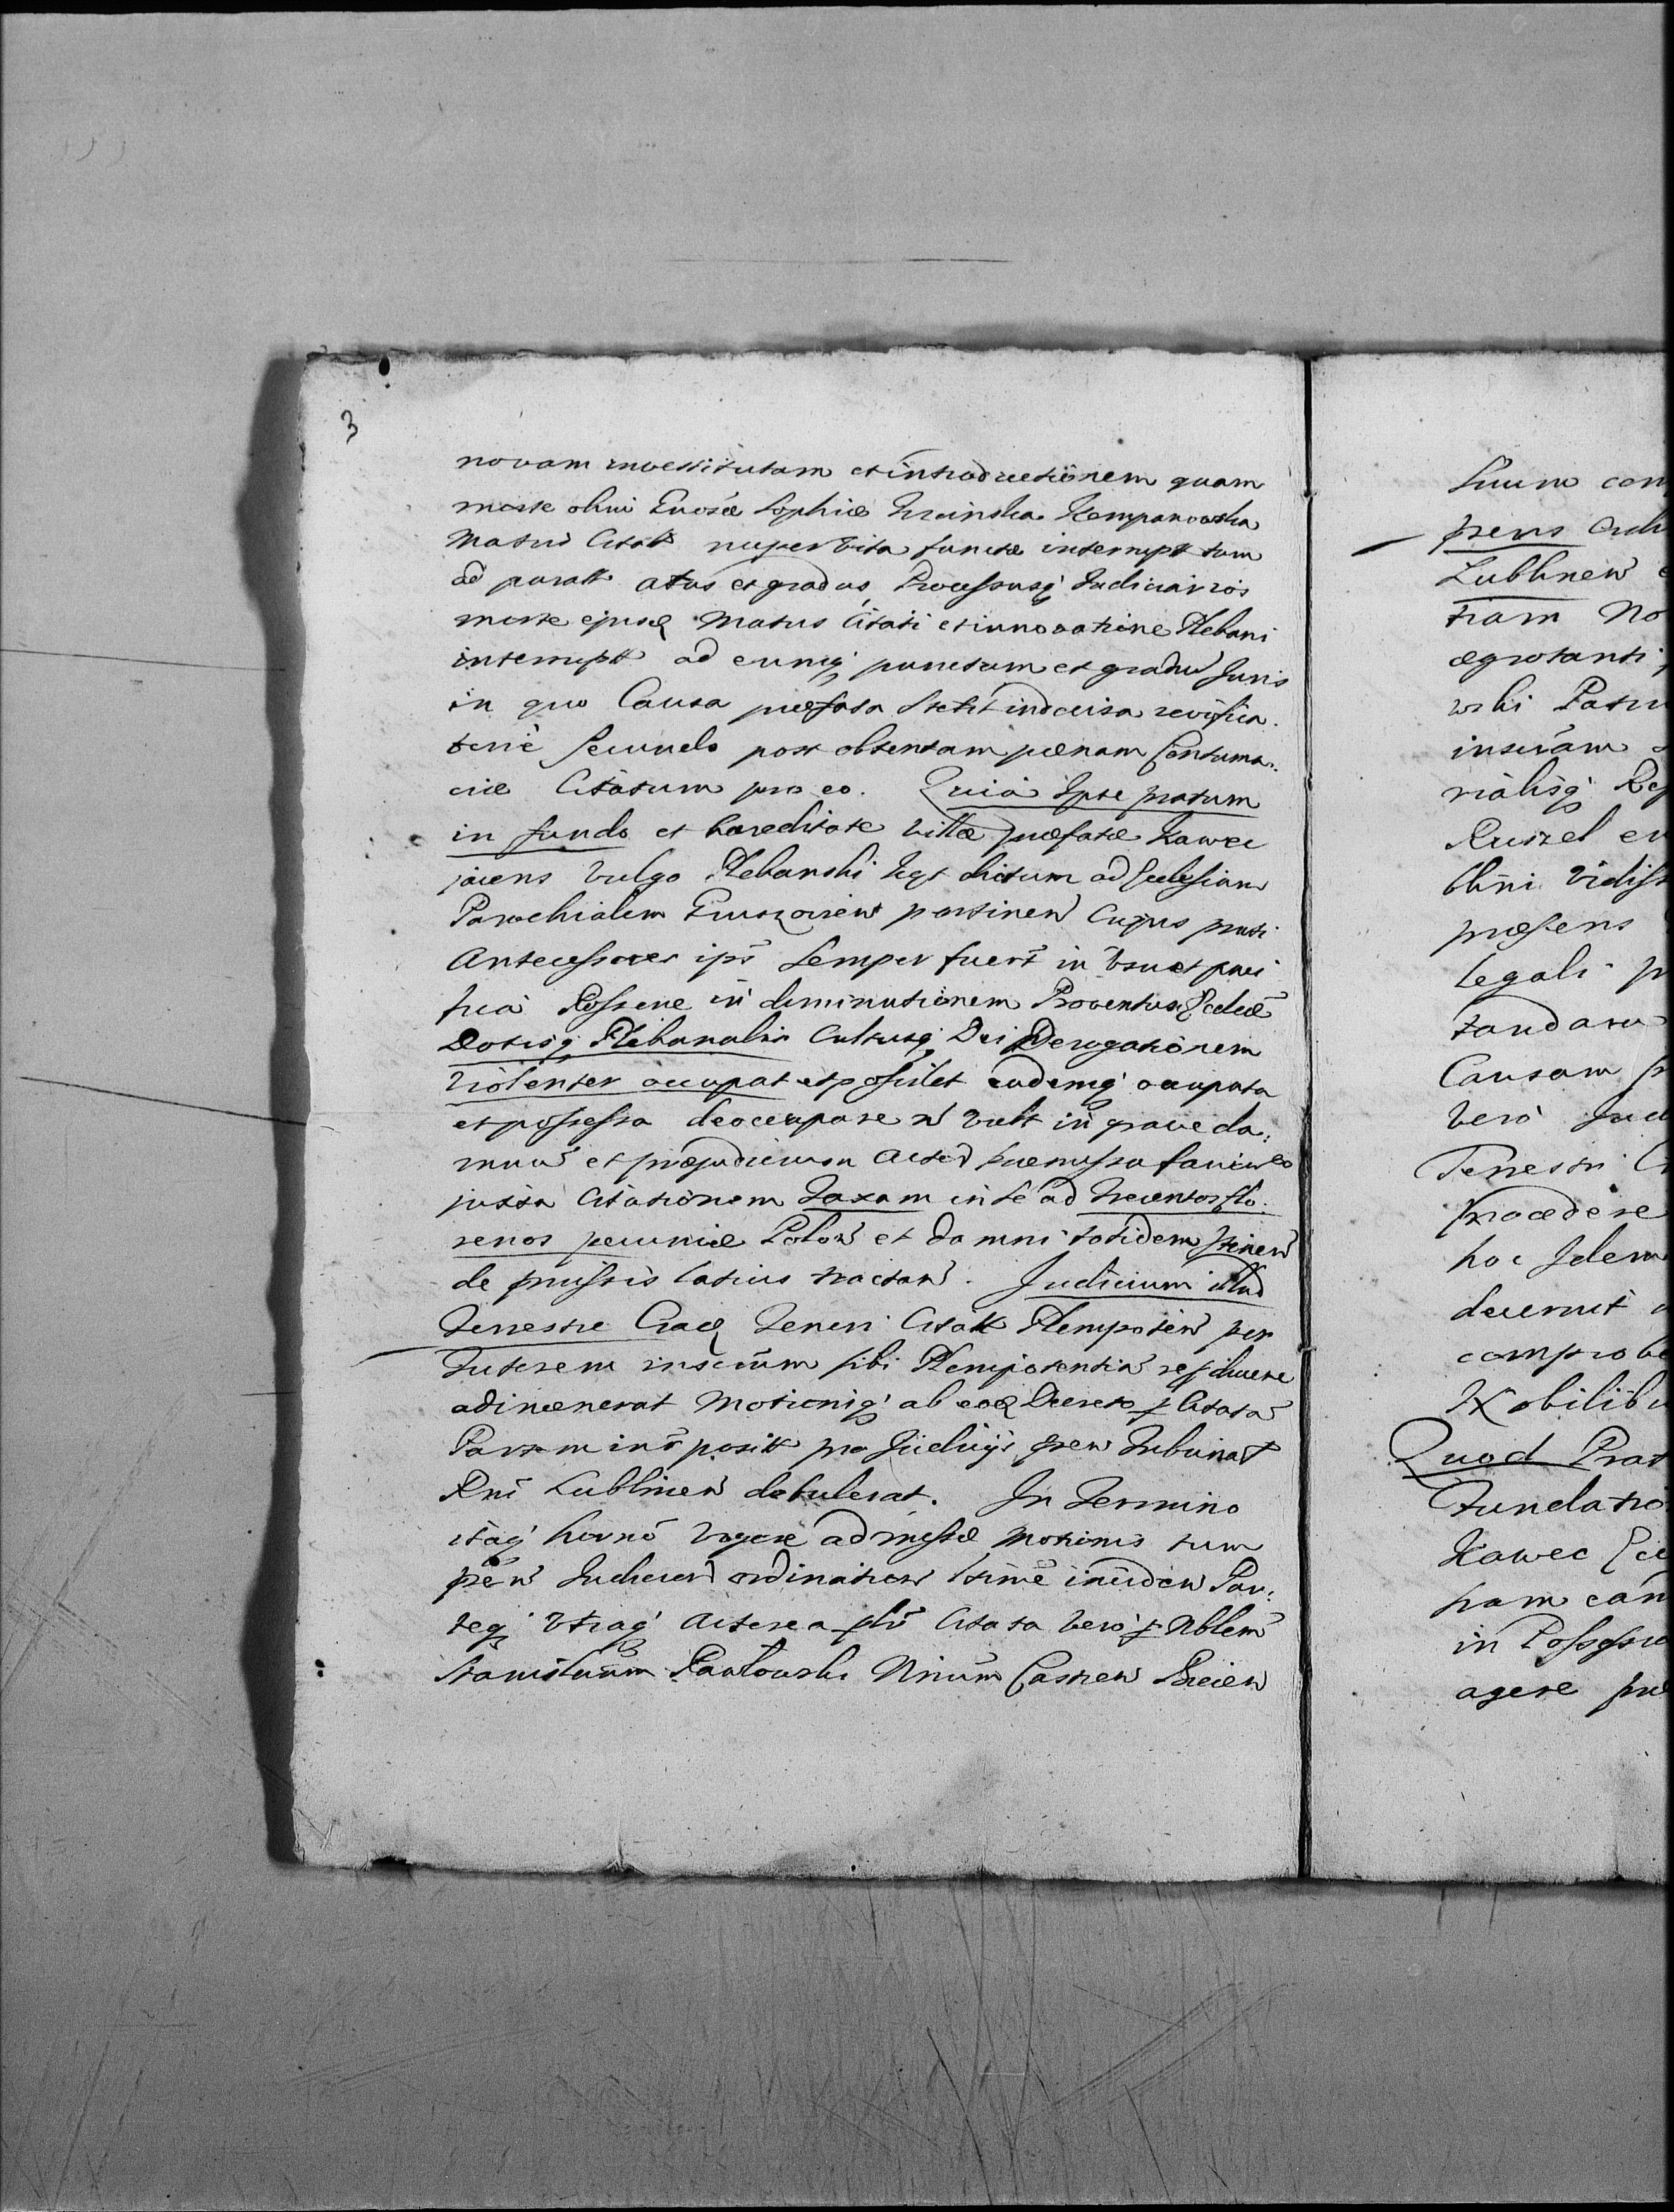 3
novam investituram et introductionem quam
morte olim Gnosæ Sophiæ Kempanowska
Matris Citati nuper vita functæ interrupt tum
ad paratt atus et gradus Processusq Judiciarios
morte ejusd Matris Citati et innovatione Plebani
interrupt ad eumq punctum et gradu Juris
in quo Causa præfata stetit indecisa
Secundo post obtentam pænam Contuma-
ciæ Citatum pro eo. Quia Ipse pratum
in fundo et hæreditate villæ præfatæ Kawec
jacens vulgo Plebanski Ług dictum ad Ecclesiam
Parochialem pertinen Cujus prati
Antecessores ipsi semper fuert in usu et paci
fica Possone in diminutionem Proventus Ecclæ
Dotisq Plebanalis Cultusq Dei Derogationem
Violenter occupat et possidet eademq occupata
et possessa deoccupare n vult in grave da:
mnu et præjudicium præmissa
juxta Citationem Taxam in se ad Trecentos flo:
renos pecuniæ Polon et damni totidem
de præssis latius tractan. Judicium illud
Terrestre Teneri Citatt Plempoten per
Tutorem inscium sibi Plenipotentia
adinvenerat Motioniq ab eod Decreto p Citata
Partem posit pro Judicijs gren Tribunat
Rni Lublinen detulerat. In Termino
itaq horno admissæ motionis tum
pen Judicior ordination incden Par:
teq utraq Actorea Citata vero p Nblem
Stanislaum Pawłowski Castren
Suum com
prens
Lublinen
tiam No
ægrotanti
wski Patro
inscriam
rialisq Reg
Ruszel
blini Vidiss
præsens
legali
tandara
Causam
vero Jud
Terrestri
procedere
hoc Idem
decernit
comprobe
Nobilibu
Quod Prat
Fundatio
Kawec
in Possessio
agere præ